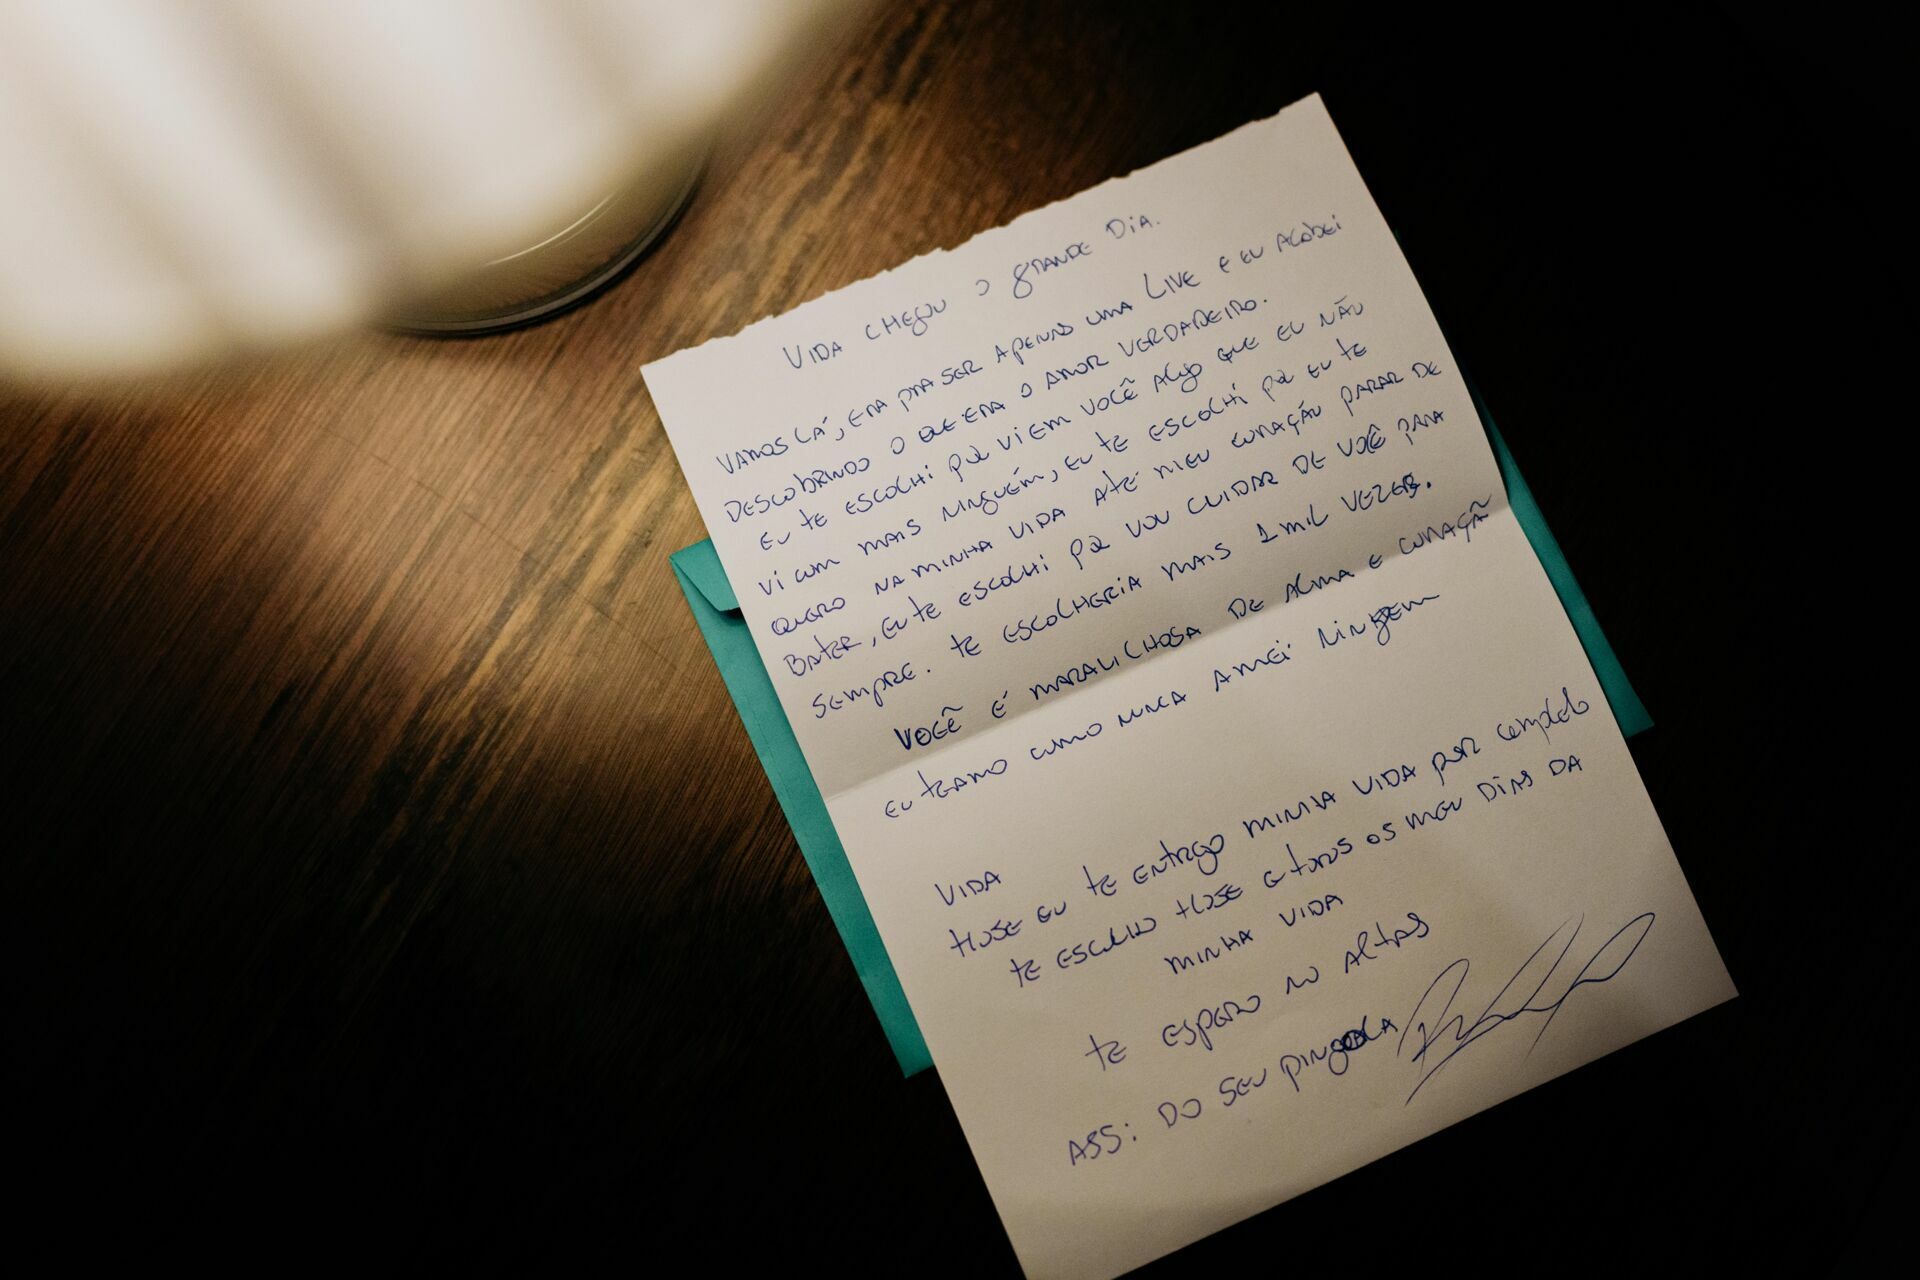 VIDA CHEGOU O GRANDE DIA.
VAMOS LÁ, ERA PRA SER APENAS UMA LIVE E EU ACABEI
DESCOBRINDO O QUE ERA O AMOR VERDADEIRO.
EU TE ESCOLHI PQ VI EM VOCÊ ALGO QUE EU NÃO
VI COM MAIS NINGUÉM, EU TE ESCOLHI PQ EU TE
QUERO NA MINHA VIDA ATÉ MEU CORAÇÃO PARAR DE
BATER, EU TE ESCOLHI PQ VOU CUIDAR DE VOCÊ PARA
SEMPRE. TE ESCOLHERIA MAIS 1 MIL VEZES.
VOCÊ É MARAVILHOSA DE ALMA E CORAÇÃO
EU TE AMO COMO NUNCA AMEI NINGUEM
VIDA
HOJE EU TE ENTREGO MINHA VIDA POR COMPLETO
TE ESCOLHO HOJE E TODOS OS MEU DIAS DA
MINHA VIDA
TE ESPERO NO ALTAR
ASS: DO SEU